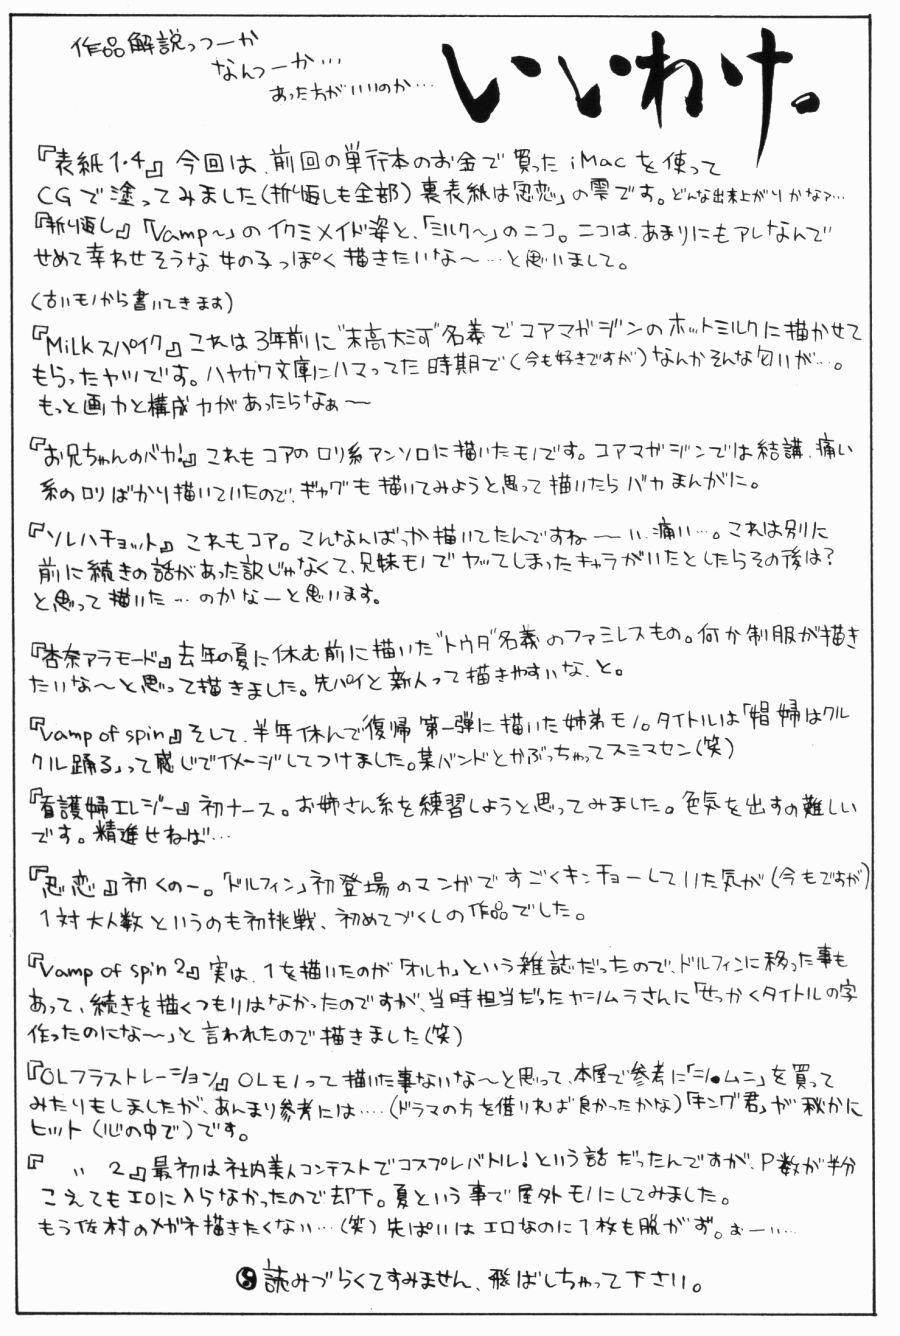 作品解説っつーか
なんつーか…
あった方がいいのか…
いいわけ。
『表紙1・4』今回は、前回の単行本のお金で買ったiMacを使って
CGで塗ってみました(折り返しも全部)裏表紙は「忍恋」の雫です。どんな出来上がりかなァ…
『折り返し』「Vamp〜」のイクミメイド姿と、「ミルク〜」のニコ。ニコは、あまりにもアレなんで
せめて幸わせそうな女の子っぽく描きたいな〜…と思いまして。
(古いモノから書いてきます)
『Milkスパイク』これは3年前に"末高大河"名義でコアマガジンのホットミルクに描かせて
もらったヤツです。ハヤカワ文庫にハマってた時期で(今も好きですが)なんかそんな匂いが…。
もっと画力と構成力があったらなぁ〜
『お兄ちゃんのバカ!』これもコアのロリ系アンソロに描いたモノです。コアマガジンでは結講、痛い
系のロリばかり描いていたので、ギャグも描いてみようと思って描いたらバカまんがに。
『ソルハチョット』これもコア。こんなんばっか描いてたんですねーい、痛い…。これは別に
前に続きの話があった訳じゃなくて、兄妹モノでヤッてしまったキャラがいたとしたらその後は?
と思って描いた…のかなーと思います。
『杏奈アラモード』去年の夏に休む前に描いた"トウタ"名義のファミレスもの。何か制服が描き
たいな〜と思って描きました。先パイと新人って描きやすいな、と。
『Vamp of spin』そして、半年休んで復帰第一弾に描いた姉弟モノ。タイトルは「娼婦はクル
クル踊る」って感じでイメージしてつけました。某バンドとかぶっちゃってスミマセン(笑)
『看護婦エレジー』初ナース。お姉さん系を練習しようと思ってみました。色気を出すの難しい
です。精進せねば…
『忍恋』初くの一。「ドルフィン」初登場のマンガですごくキンチョーしていた気が(今もですが)
1対大人数というのも初挑戦、初めてづくしの作品でした。
『Vamp of spin 2』実は、1を描いたのが「オルカ」という雑誌だったので、ドルフィンに移った事も
あって、続きを描くつもりはなかったのですが、当時担当だったヤシムラさんに「せっかくタイトルの字
作ったのにな〜」と言われたので描きました(笑)
『OLフラストレーション』OLモノって描いた事ないな〜と思って、本屋で参考に「シ●ムニ」を買って
みたりもしましたが、あんまり参考には…(ドラマの方を借りれば良かったかな)「キング君」が秘かに
ヒット(心の中で)です。
『 〃 2』最初は社内美人コンテストでコスプレバトル!という話だったんですが、P数が半分
こえてもエロに入らなかったので却下。夏という事で屋外モノにしてみました。
もう佐村のメガネ描きたくない…(笑)先ぱいはエロなのに1枚も脱がず。おーい…
読みづらくてすみません、飛ばしちゃって下さい。